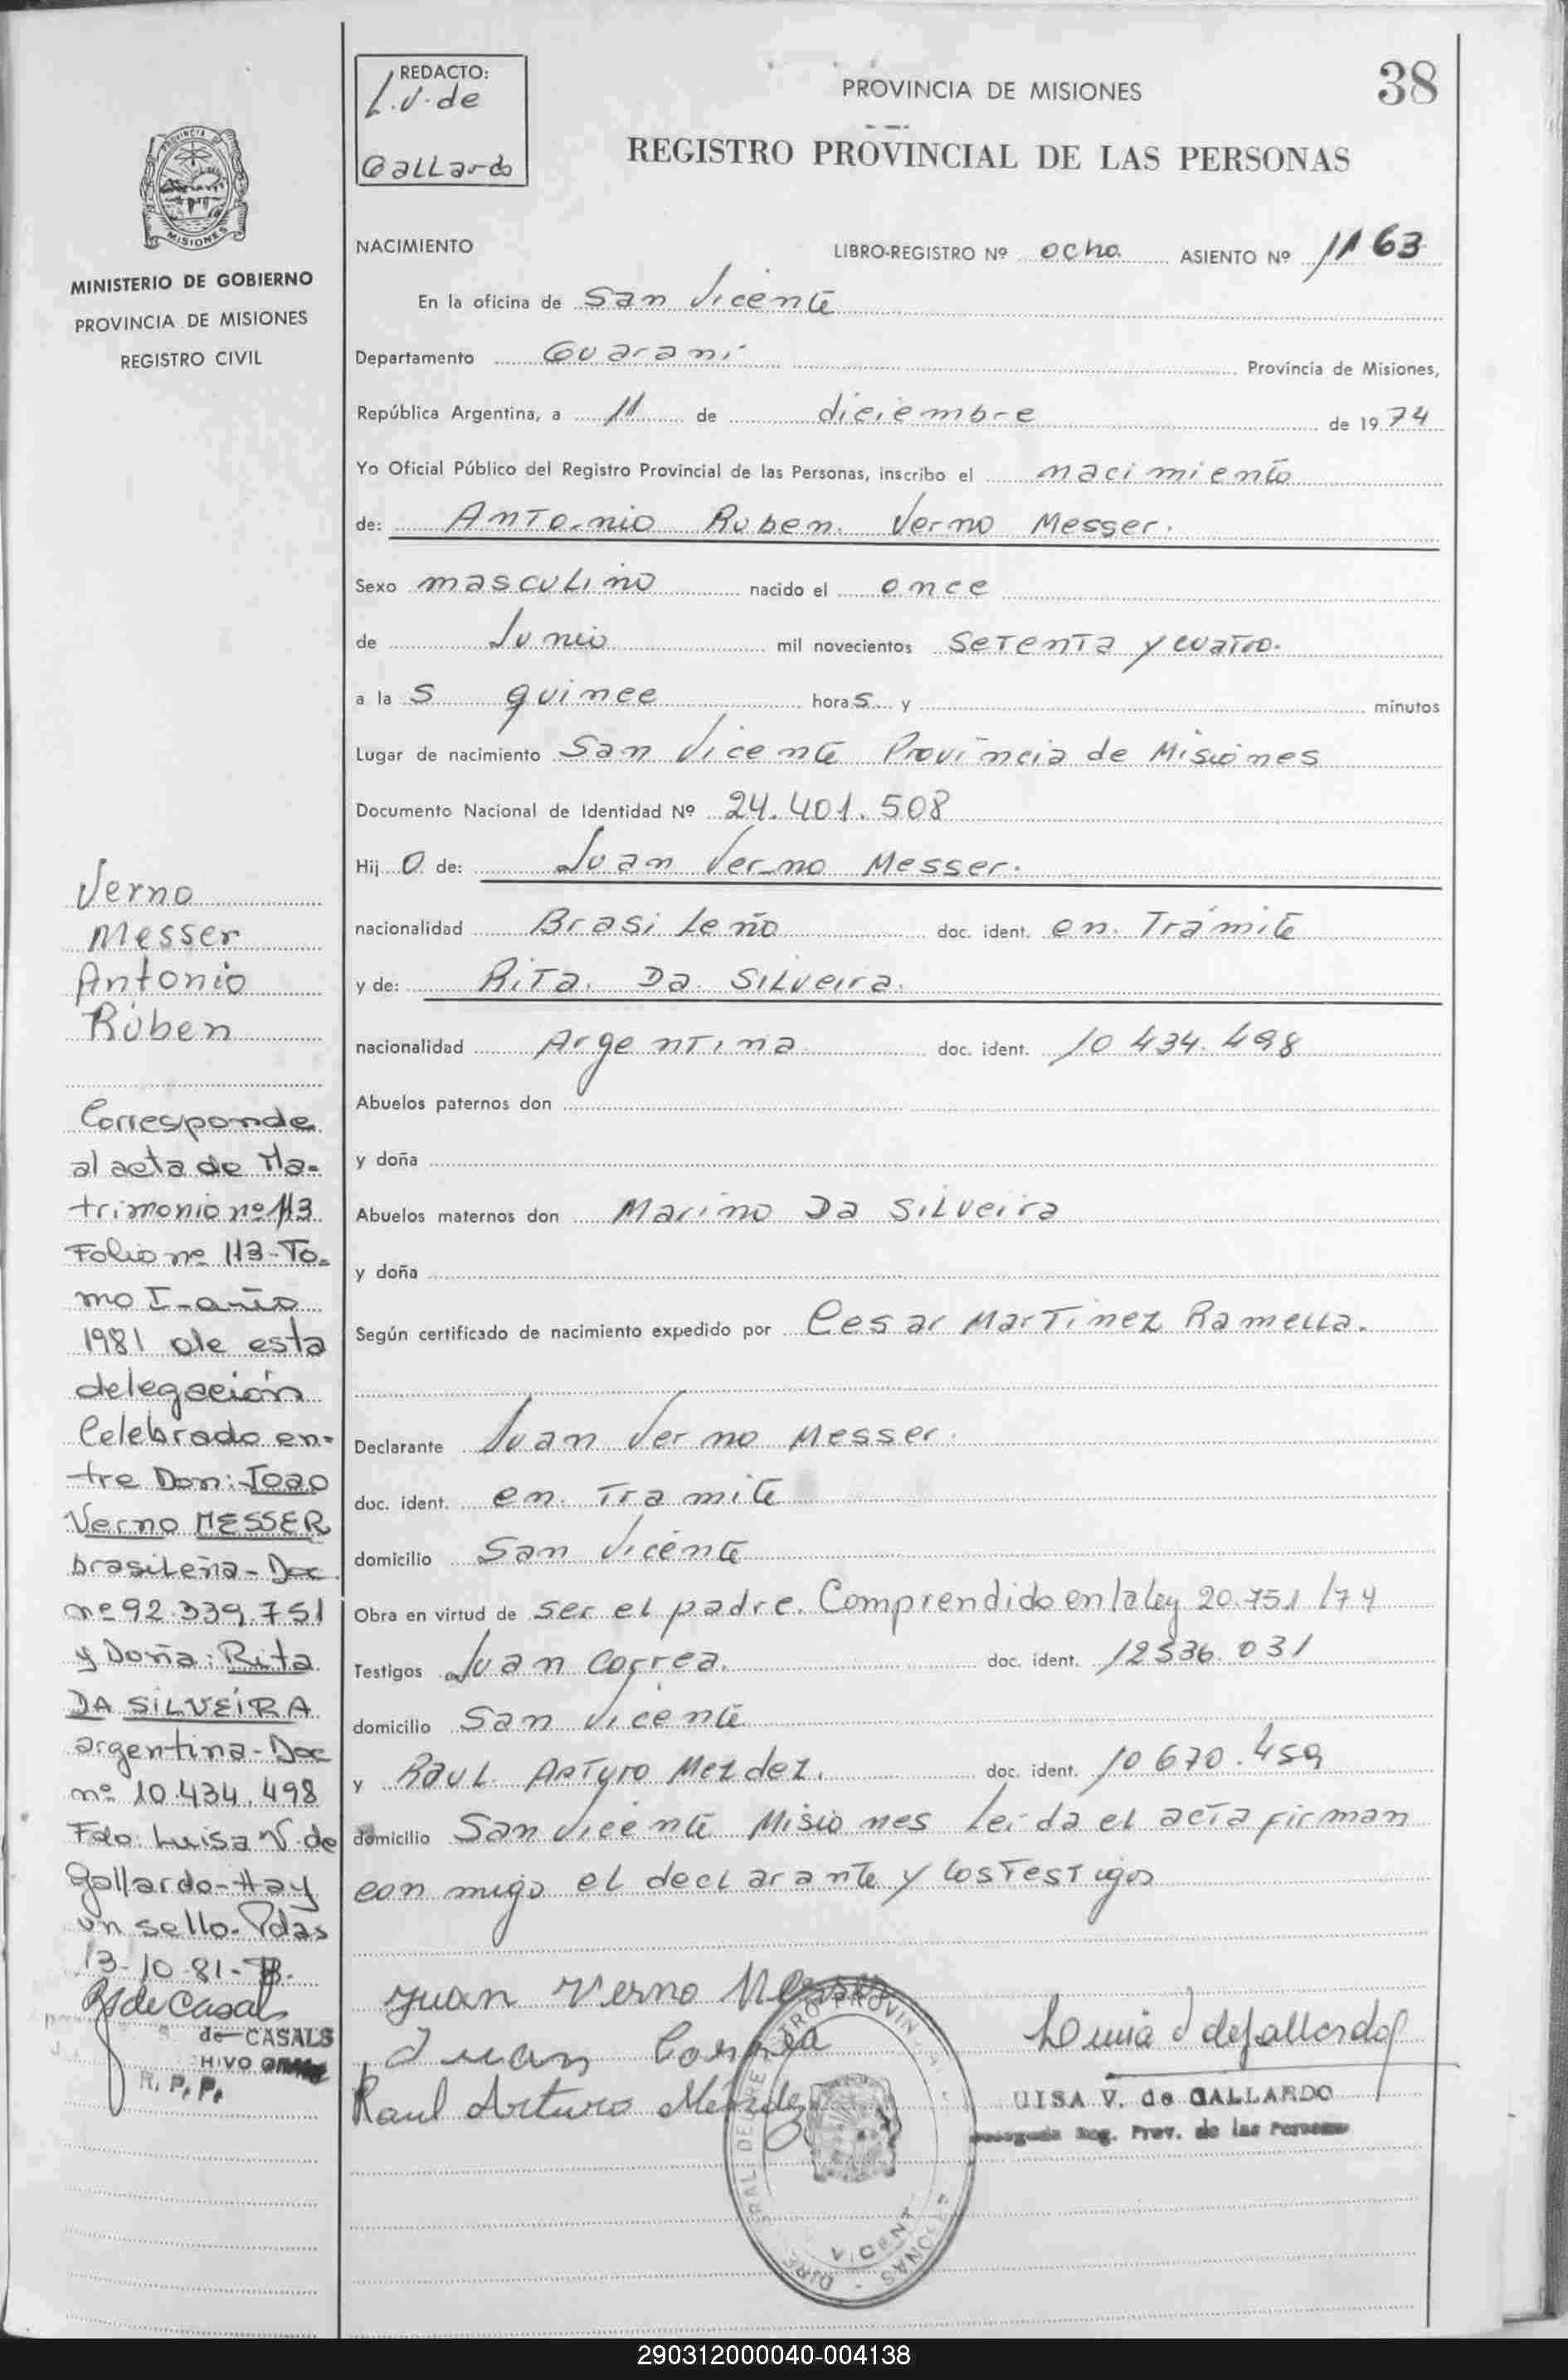 REDACTO:
L.V. de
Gallardo
PROVINCIA DE MISIONES
38
REGISTRO PROVINCIAL DE LAS PERSONAS
PROVINCIA
MISIONES
MINISTERIO DE GOBIERNO
PROVINCIA DE MISIONES
REGISTRO CIVIL
NACIMIENTO LIBRO-REGISTRO Nº ocho ASIENTO Nº 1163
En la oficina de San Vicente
Departamento Guaraní Provincia de Misiones,
República Argentina, a 11 de diciembre de 1974
Yo Oficial Público del Registro Provincial de las Personas, inscribo el nacimiento
de: Antonio Ruben Verno Messer.
Sexo masculino nacido el once
de Junio mil novecientos setenta y cuatro.
a las quince horas y minutos
Lugar de nacimiento San Vicente Provincia de Misiones
Documento Nacional de Identidad Nº 24.401.508
Hijo de: Juan Verno Messer.
nacionalidad Brasileño doc. ident. en Trámite
y de: Rita Da Silveira.
nacionalidad Argentina doc. ident. 10 434.498
Abuelos paternos don
y doña
Abuelos maternos don Marino Da Silveira
y doña
Según certificado de nacimiento expedido por Cesar Martinez Ramella.
Declarante Juan Verno Messer.
doc. ident. en Tramite
domicilio San Vicente
Obra en virtud de ser el padre. Comprendido en la ley 20.751/74
Testigos Juan Correa. doc. ident. 12536.031
domicilio San Vicente
y Raul Arturo Mezdez. doc. ident. 10 670.459
domicilio San Vicente Misiones leida el acta firman
conmigo el declarante y los Testigos
Juan Verno Messer
Juan Correa
Raul Arturo Méndez
Luisa V de Gallardo
UISA V. de GALLARDO
Reg. Prov. de las Personas
Verno
Messer
Antonio
Rúben
Corresponde
al acta de Ma-
trimonio nº 113
Folio nº 113-To-
mo I-año
1981 de esta
delegación
Celebrado en-
tre Don: Joao
Verno MESSER
brasileña-Doc
nº 92.339.751
y Doña: Rita
DA SILVEIRA
argentina-Doc
nº 10.434.498
Fdo: Luisa V. de
Gallardo-Hay
un sello-Pdas
13-10-81-
de CASALS
HIVO
R. P. P.
290312000040-004138